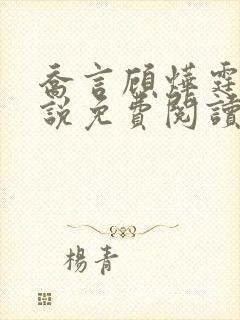 喬言顧燁霆
說免費閱讀
楊青